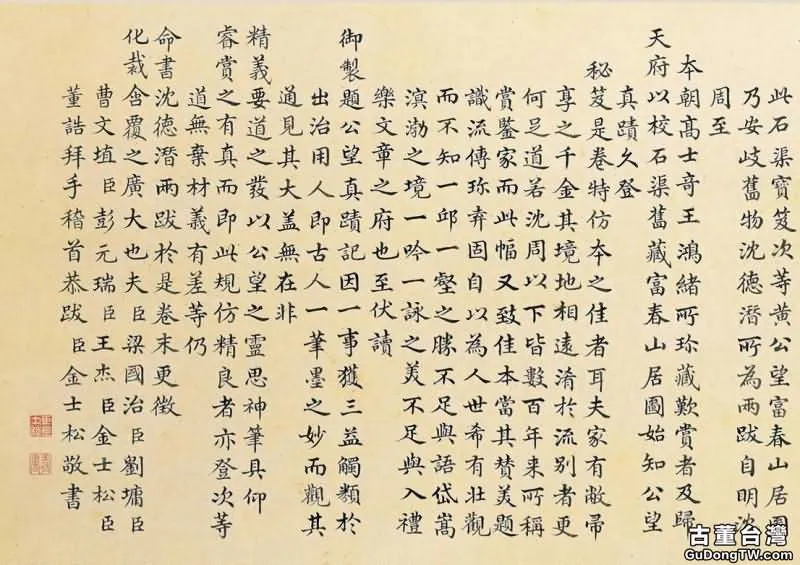 此石渠寶笈次等黃公望富春山居圖
乃安岐舊物沈德潛所為兩跋自明沈
周至
本朝高士奇王鴻緒所珍藏歎賞者及歸
天府以校石渠舊藏富春山居圖始知公望
真蹟久登
秘笈是卷特仿本之佳者耳夫家有敝帚
享之千金其境地相遠淆於流別者更
何足道若沈周以下皆數百年來所稱
賞鑒家而此幅又致佳本當其贊美題
識流傳珍弆固自以為人世希有壯觀
而不知一邱一壑之勝不足與語岱嵩
溟渤之境一吟一詠之美不足與入禮
樂文章之府也至伏讀
御製題公望真蹟記因一事獲三益觸類於
出治用人即古人一筆墨之妙而觀其
通見其大蓋無在非
精義要道之發以公望之靈思神筆具仰
睿賞之有真而即此規仿精良者亦登次等
道無棄材義有差等仍
命書沈德潛兩跋於是卷末更徵
化裁含覆之廣大也夫臣梁國治臣劉墉臣
曹文埴臣彭元瑞臣王杰臣金士松臣
董誥拜手稽首恭跋 臣金士松敬書
古董台灣
GuDongTW.com